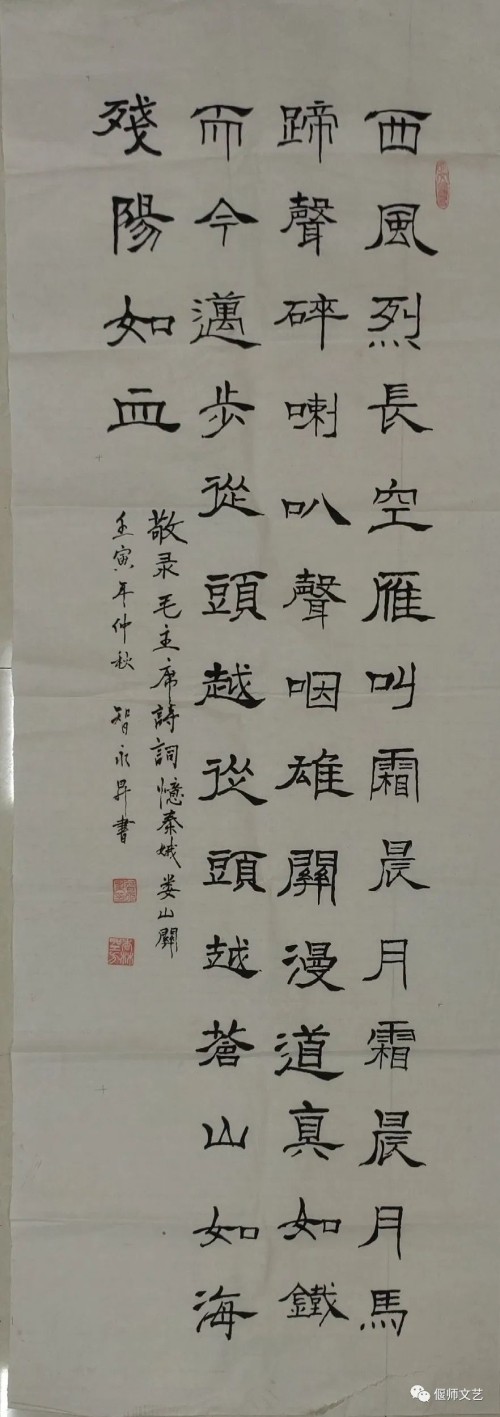 西風烈長空雁叫霜晨月霜晨月馬
蹄聲碎喇叭聲咽雄關漫道真如鐵
而今邁步從頭越從頭越蒼山如海
殘陽如血
敬录毛主席詩詞憶秦娥 娄山關
壬寅年仲秋 智永昇書
偃师文艺